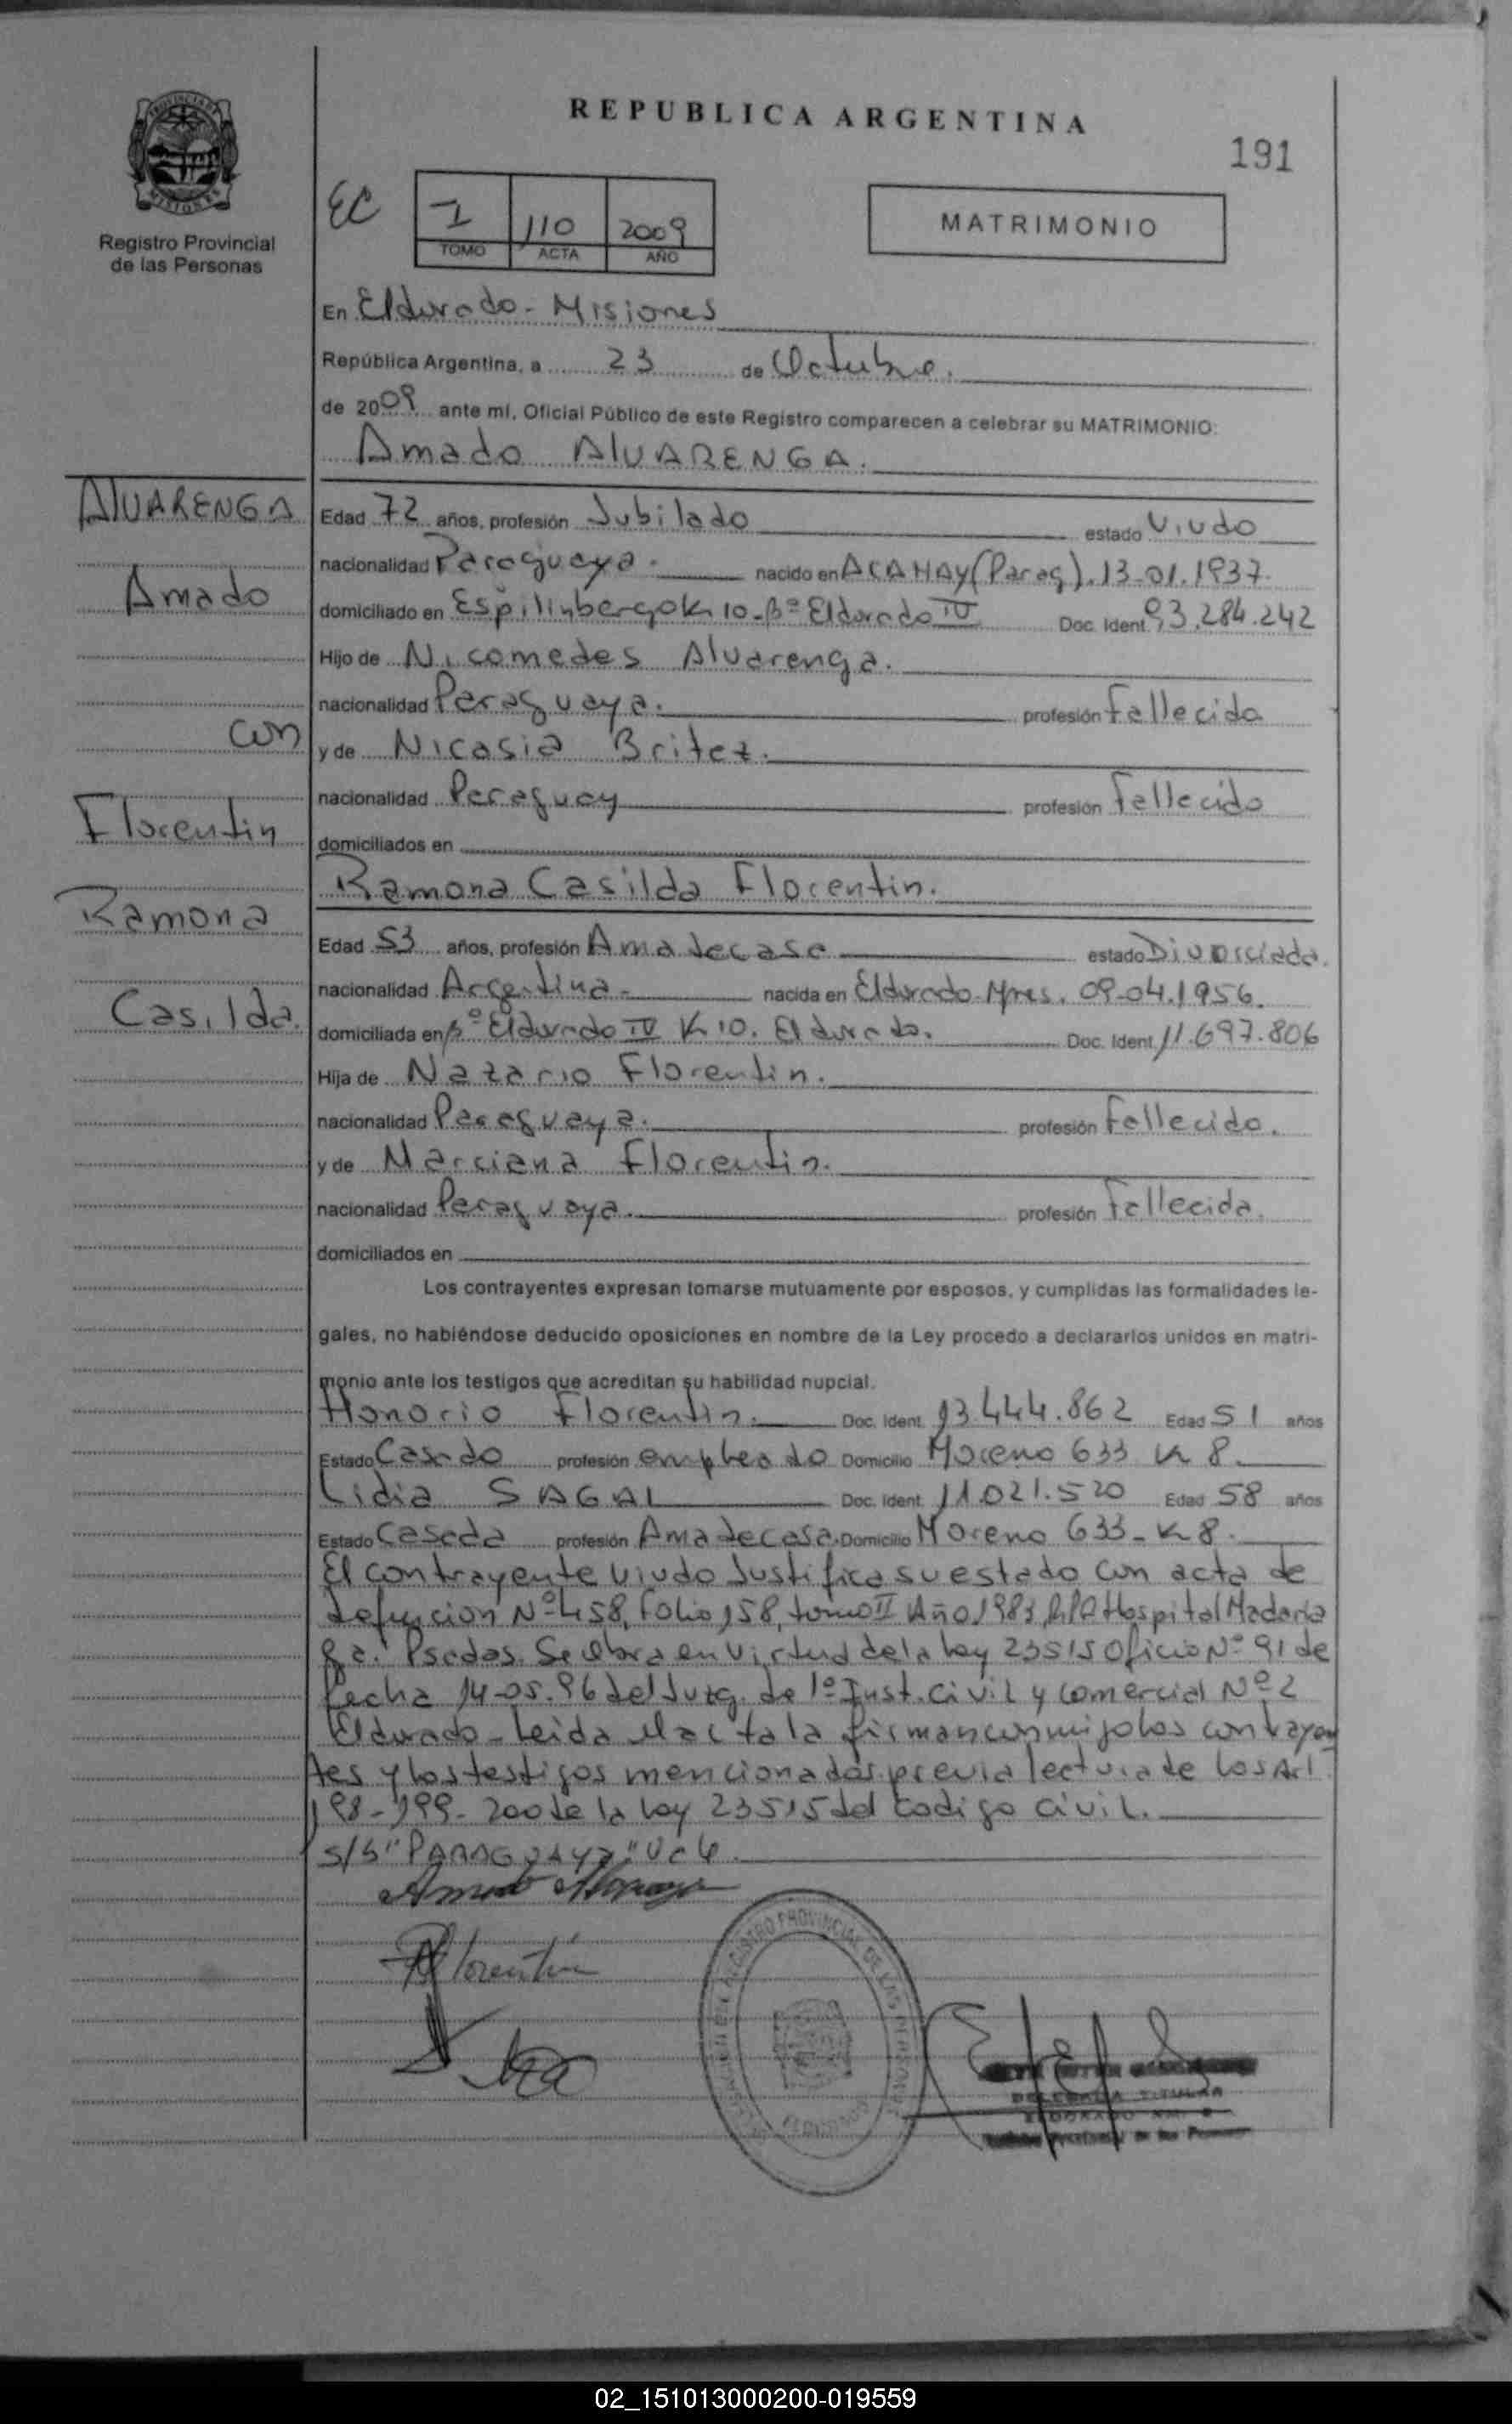 REPUBLICA ARGENTINA
191
PROVINCIA DE MISIONES
Registro Provincial
de las Personas
EC
I 110 2009
TOMO ACTA AÑO
MATRIMONIO
En Eldorado - Misiones
República Argentina, a 23 de Octubre.
de 2009 ante mí, Oficial Público de este Registro comparecen a celebrar su MATRIMONIO:
Amado AlVARENGA.
AlVARENGA
Amado
con
Florentin
Ramona
Casilda.
Edad 72 años, profesión Jubilado estado Viudo
nacionalidad Paraguaya. nacido en ACAHAY (Parag). 13-01.1937.
domiciliado en Espilinbergo K 10-Bº Eldorado IV Doc. Ident. 93.284.242
Hijo de Nicomedes Alvarenga.
nacionalidad Paraguaya. profesión Fallecido
y de Nicasia Britez.
nacionalidad Paraguay profesión Fallecido
domiciliados en
Ramona Casilda Florentin.
Edad 53 años, profesión Ama de casa estado Divorciada.
nacionalidad Argentina- nacida en Eldorado-Mnes. 09-04.1956.
domiciliada en Bº Eldorado IV K 10. Eldorado. Doc. Ident. 11.697.806
Hija de Nazario Florentin.
nacionalidad Paraguaya. profesión Fallecido.
y de Marciana Florentin.
nacionalidad Paraguaya. profesión Fallecida.
domiciliados en
Los contrayentes expresan tomarse mutuamente por esposos, y cumplidas las formalidades le-
gales, no habiéndose deducido oposiciones en nombre de la Ley procedo a declararlos unidos en matri-
monio ante los testigos que acreditan su habilidad nupcial.
Honorio Florentin. Doc. Ident. 13.444.862 Edad 51 años
Estado Casado profesión empleado Domicilio Moreno 633 K 8.
Lidia SAGAL Doc. Ident. 11.021.520 Edad 58 años
Estado Casada profesión Ama de casa. Domicilio Moreno 633-K 8.
El contrayente viudo Justifica su estado con acta de
defuncion Nº 458, folio 158, tomo II Año 1983 Hospital Madaria
ga. Psadas. Se obra en virtud de la ley 23515 Oficio Nº 91 de
fecha 14-05.96 del Juzg. de 1º Inst. Civil y Comercial Nº 2
Eldorado - Leida el acta la firman conmigo los contrayen
tes y los testigos mencionados previa lectura de los Art.
198-199-200 de la ley 23515 del codigo civil.
s/b "PARAGUAYA" Vale.
Florentin
REGISTRO PROVINCIAL DE LAS PERSONAS
ELDORADO
DELEGADA TITULAR
ELDORADO KM. 
02_151013000200-019559